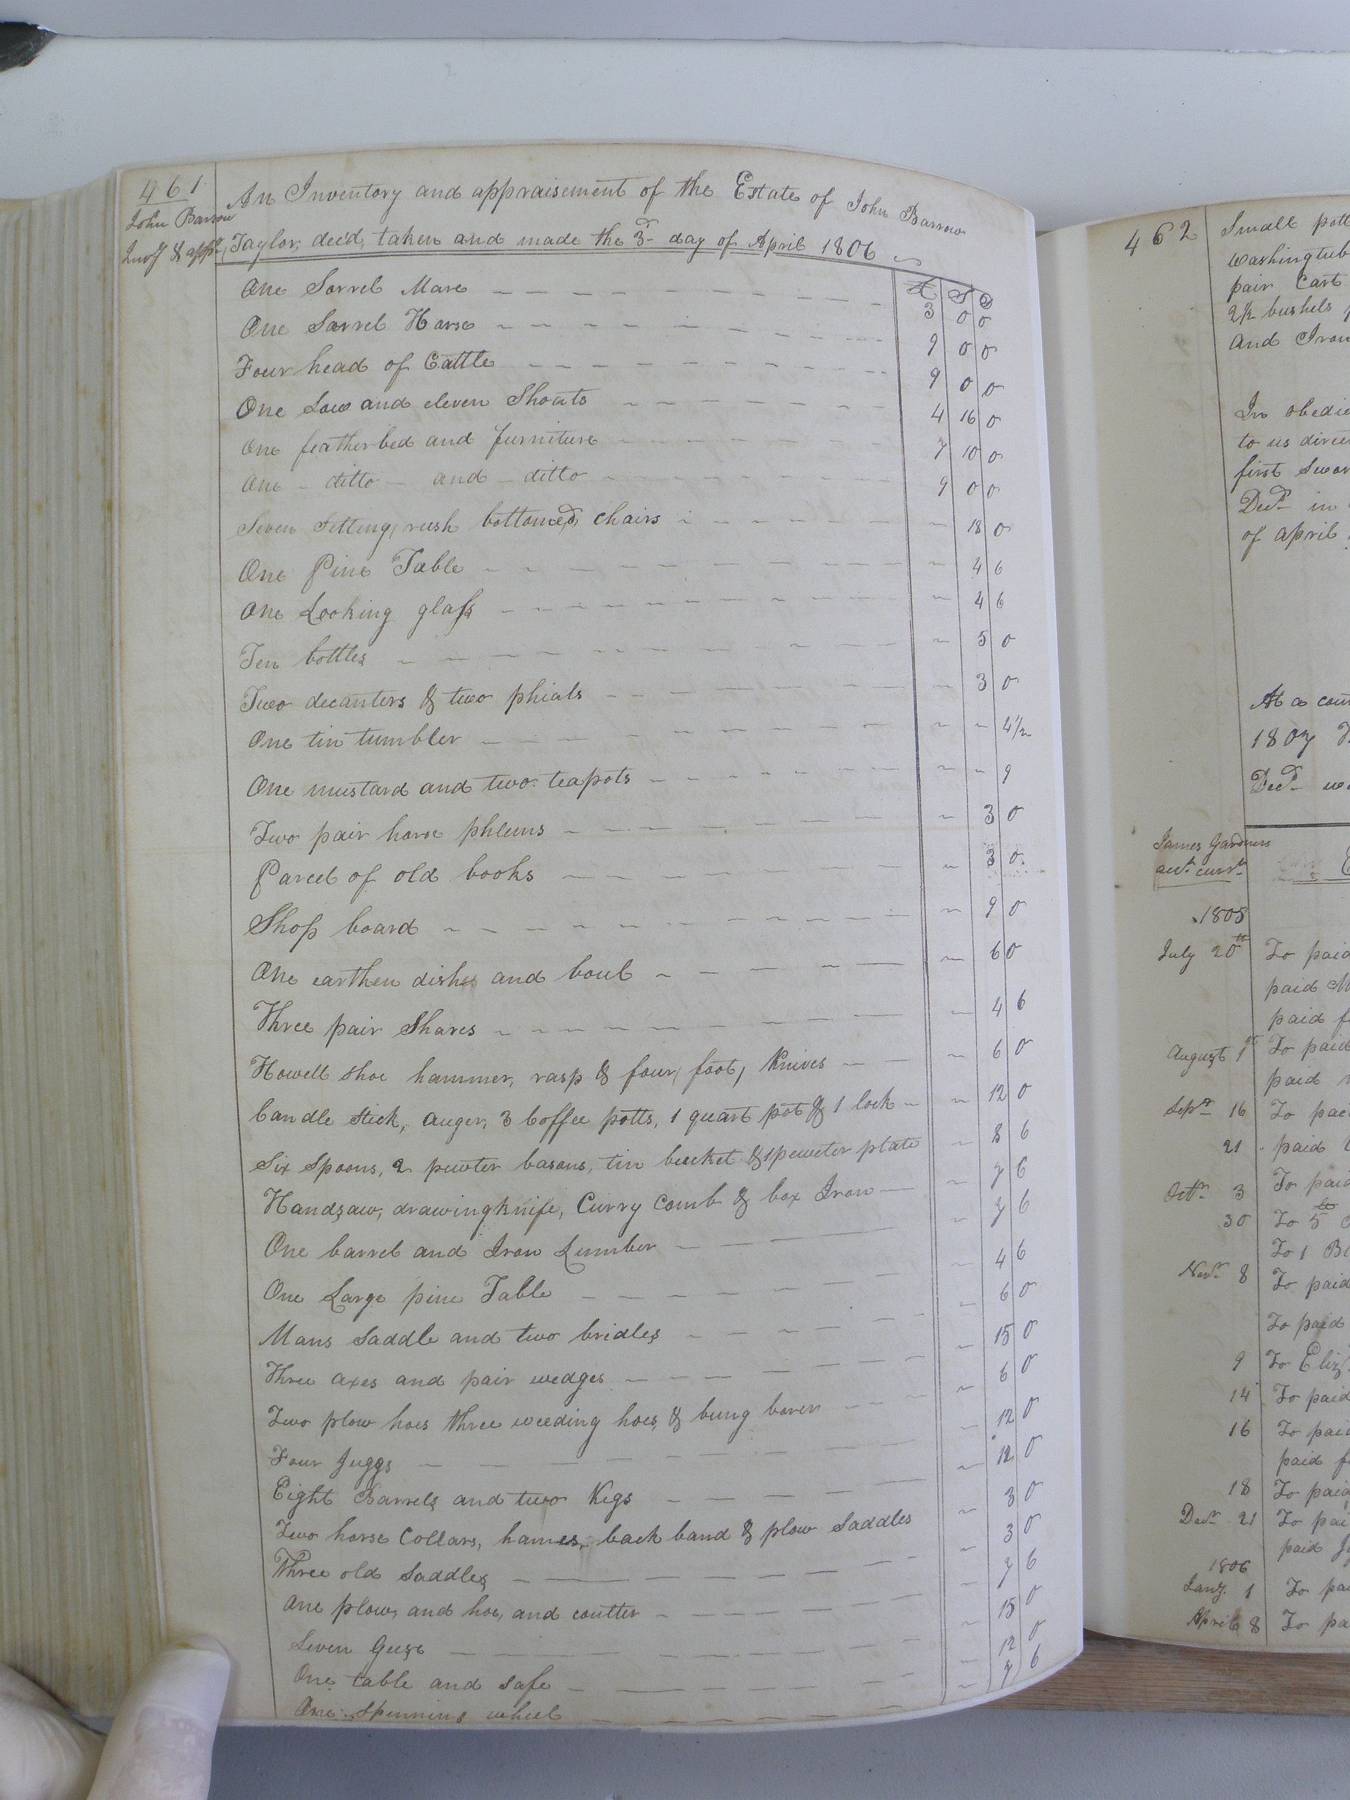 461
John Barrow
Invy & appt
An Inventory and appraisement of the Estate of John Barrow
Taylor, dec'd, taken and made the 3d day of April 1806
£ S D
One Sorrel Mare 3 0 0
One Sorrel Horse 9 0 0
Four head of Cattle 9 0 0
One Sow and eleven Shoats 4 16 0
One featherbed and furniture 7 10 0
One ditto and ditto 9 0 0
Seven Setting, rush bottomed, chairs 18 0
One Pine Table 4 6
One Looking glass 4 6
Ten bottles 5 0
Two decanters & two phials 3 0
One tin tumbler 4½
One mustard and two teapots 9
Two pair horse phlems 3 0
Parcel of old books 3 0
Shop board 9 0
One earthen dishes and boul 6 0
Three pair Shares 4 6
Howell shoe hammer, rasp & four, foot, Knives 6 0
Candle stick, auger, 3 Coffee potts, 1 quart pot & 1 lock 12 0
Six Spoons, 2 pewter basons, tin bucket & 1 pewter plate 8 6
Handsaw, drawingknife, Curry Comb & box Iron 7 6
One barrel and Iron Lumber 7 6
One Large pine Table 4 6
Mans Saddle and two bridles 6 0
Three axes and pair wedges 15 0
Two plow hoes three weeding hoes, & bung borer 6 0
Four Juggs 12 0
Eight Barrels and two Kegs 12 0
Two horse Collars, hames, back band & plow Saddles 3 0
Three old Saddles 3 0
One plow, and hoe, and coulter 7 6
Seven Geese 15 0
One table and safe 12 0
One Spinning wheel 7 6
462
Small
washingtub
pair Cart
2½ bushels
and Iron
In
to us
first
Decd in
of april
At a
1807
Decd
James Gardners
acct currt
1805
July 20th To paid
paid
paid
August 1st To paid
paid
Sepr 16 To
21 paid
Octr 3 To paid
30 To 5
To 1
Novr 8 To paid
To paid
9 To
14 To paid
16 To paid
paid
18 To paid
Decr 21 To
paid
1806
Jany 1 To
April 8 To